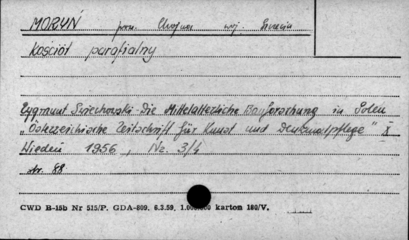 MORYŃ pow. Chojna woj. Szczecin
Kościół parafialny
Zygmunt Świechowski - Die Mittelalterliche Bauforschung in Polen
„Österreichische Zeitschrift für Kunst und Denkmalpflege" X
Wieden 1956, Nr. 3/4
str. 88
CWD B-15b Nr 515/P. GDA-809. 6.3.59, 1.000.000 karton 180/V.